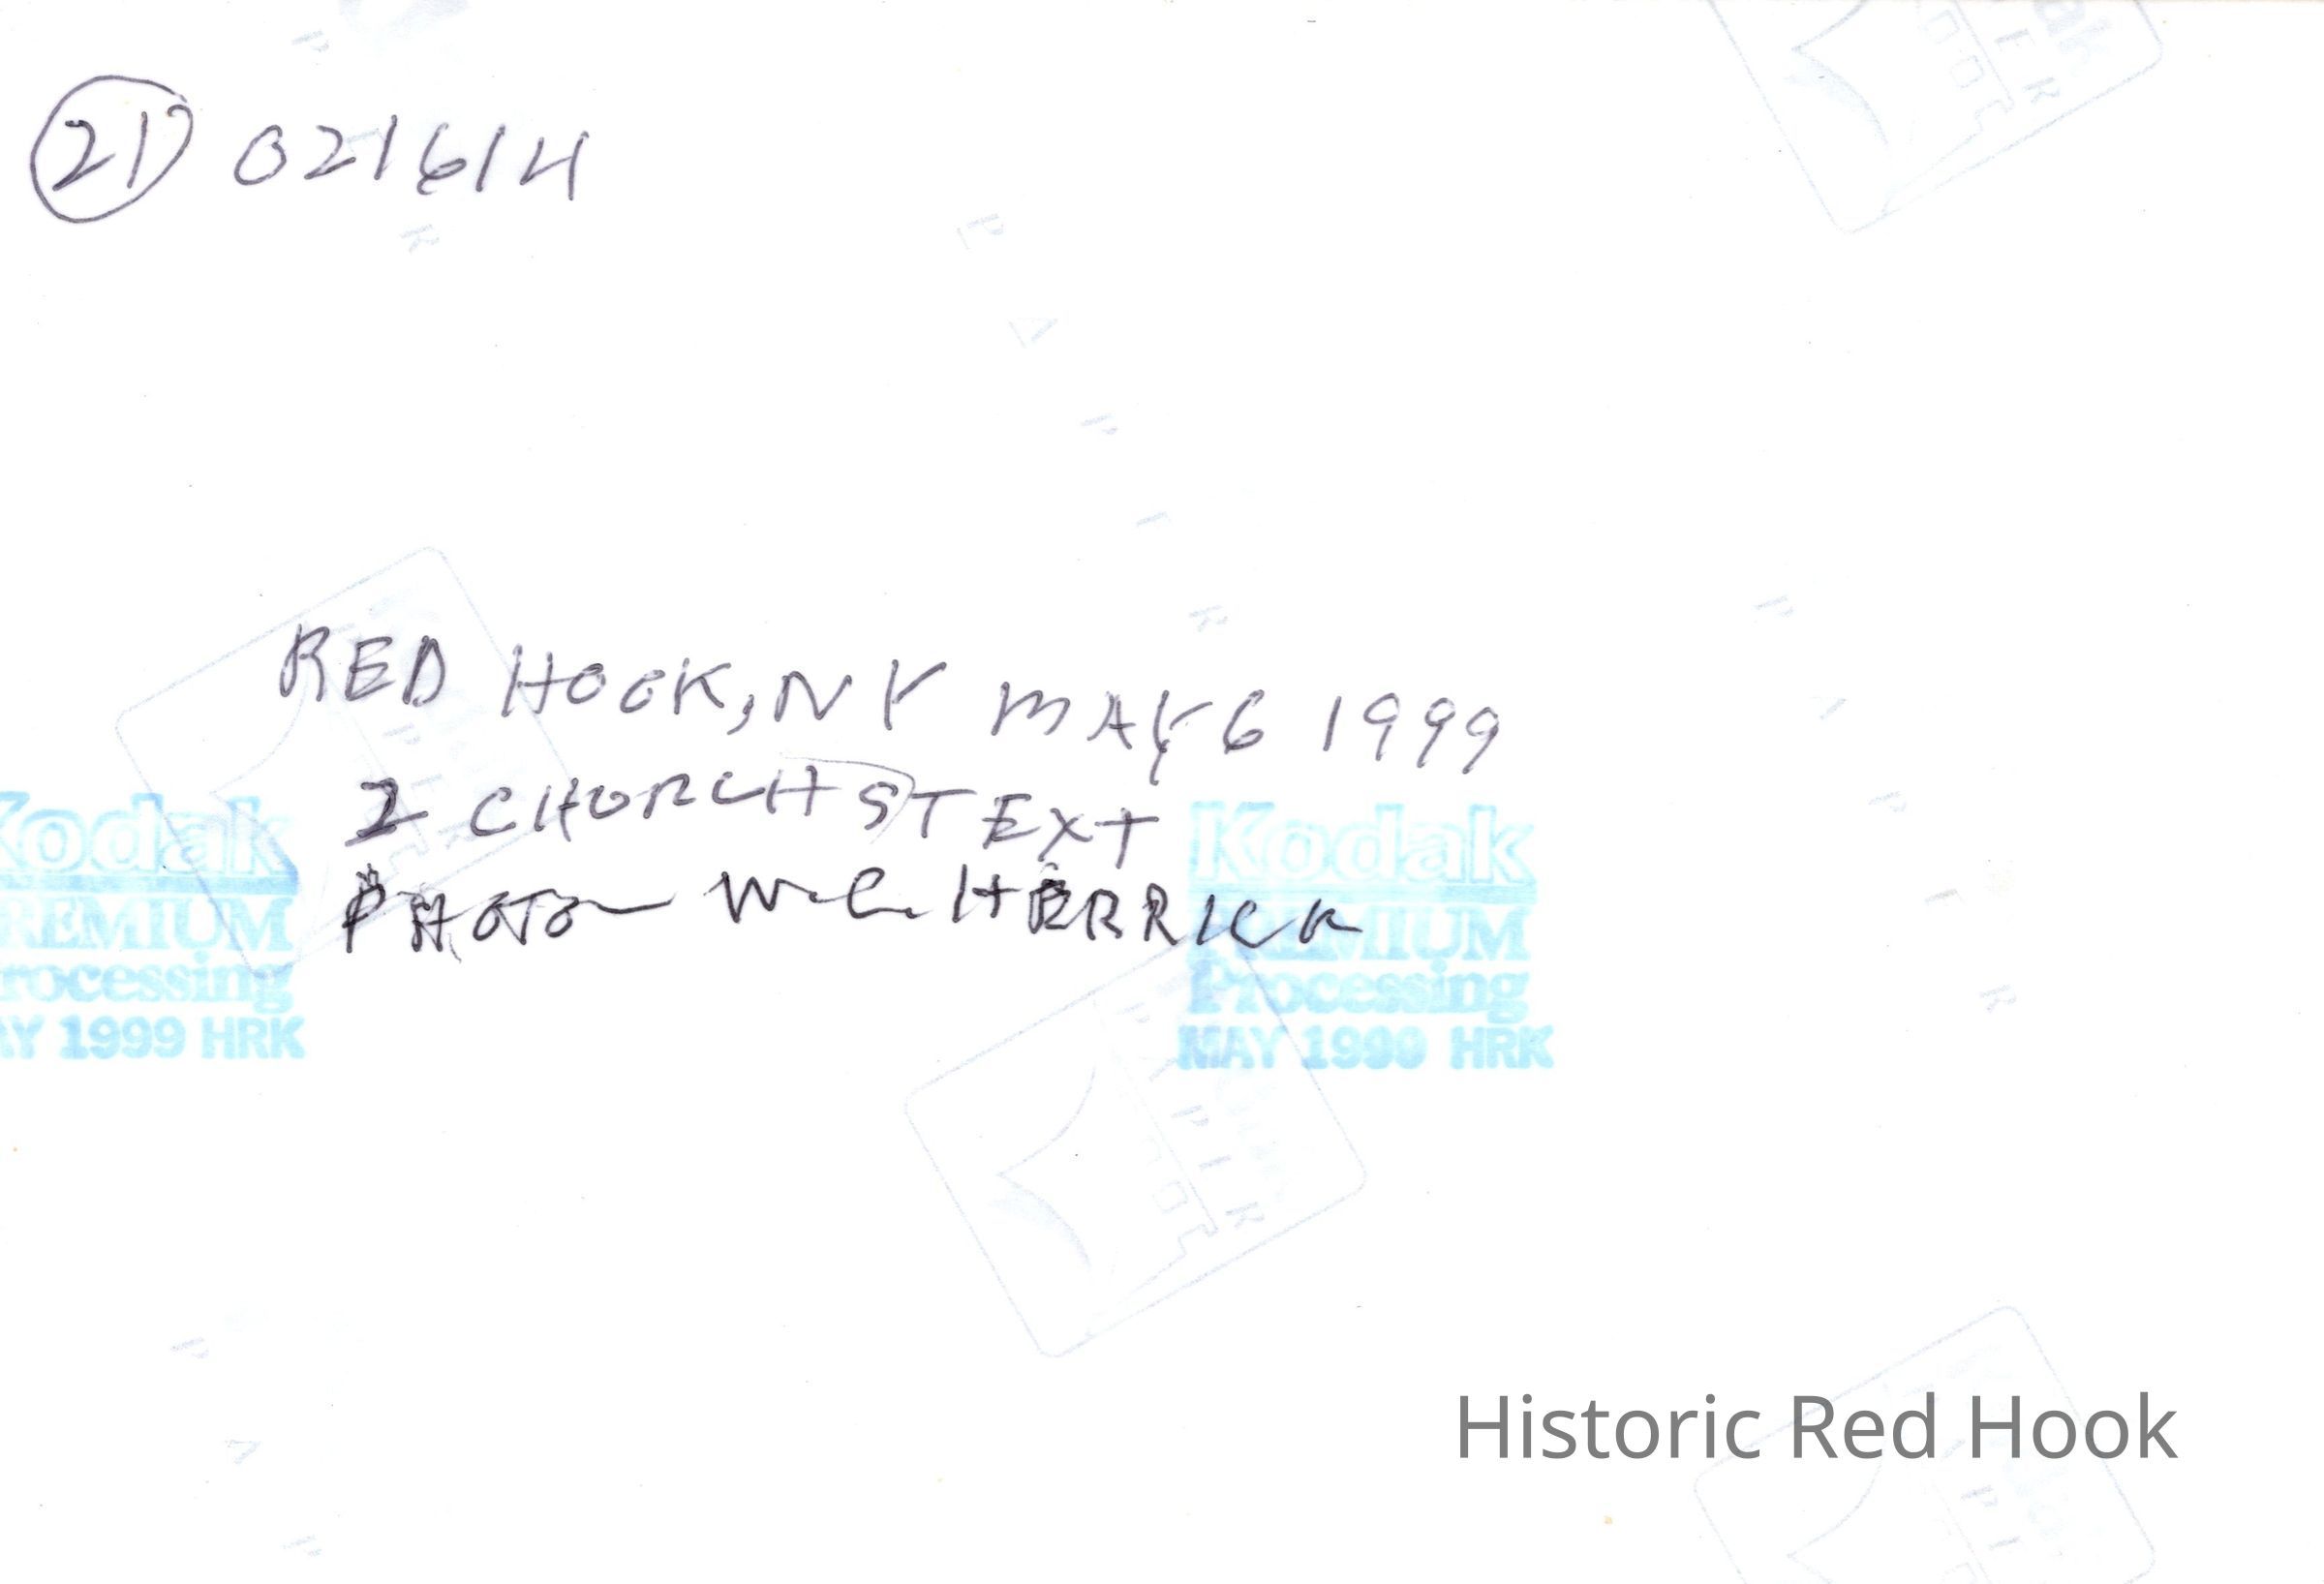 21 021614
RED HOOK, NY MAY 6 1999
2 CHURCH ST EXT
PHOTO W.C. HERRICK
Kodak
PREMIUM
Processing
MAY 1999 HRK
Kodak
PREMIUM
Processing
MAY 1999 HRK
Historic Red Hook